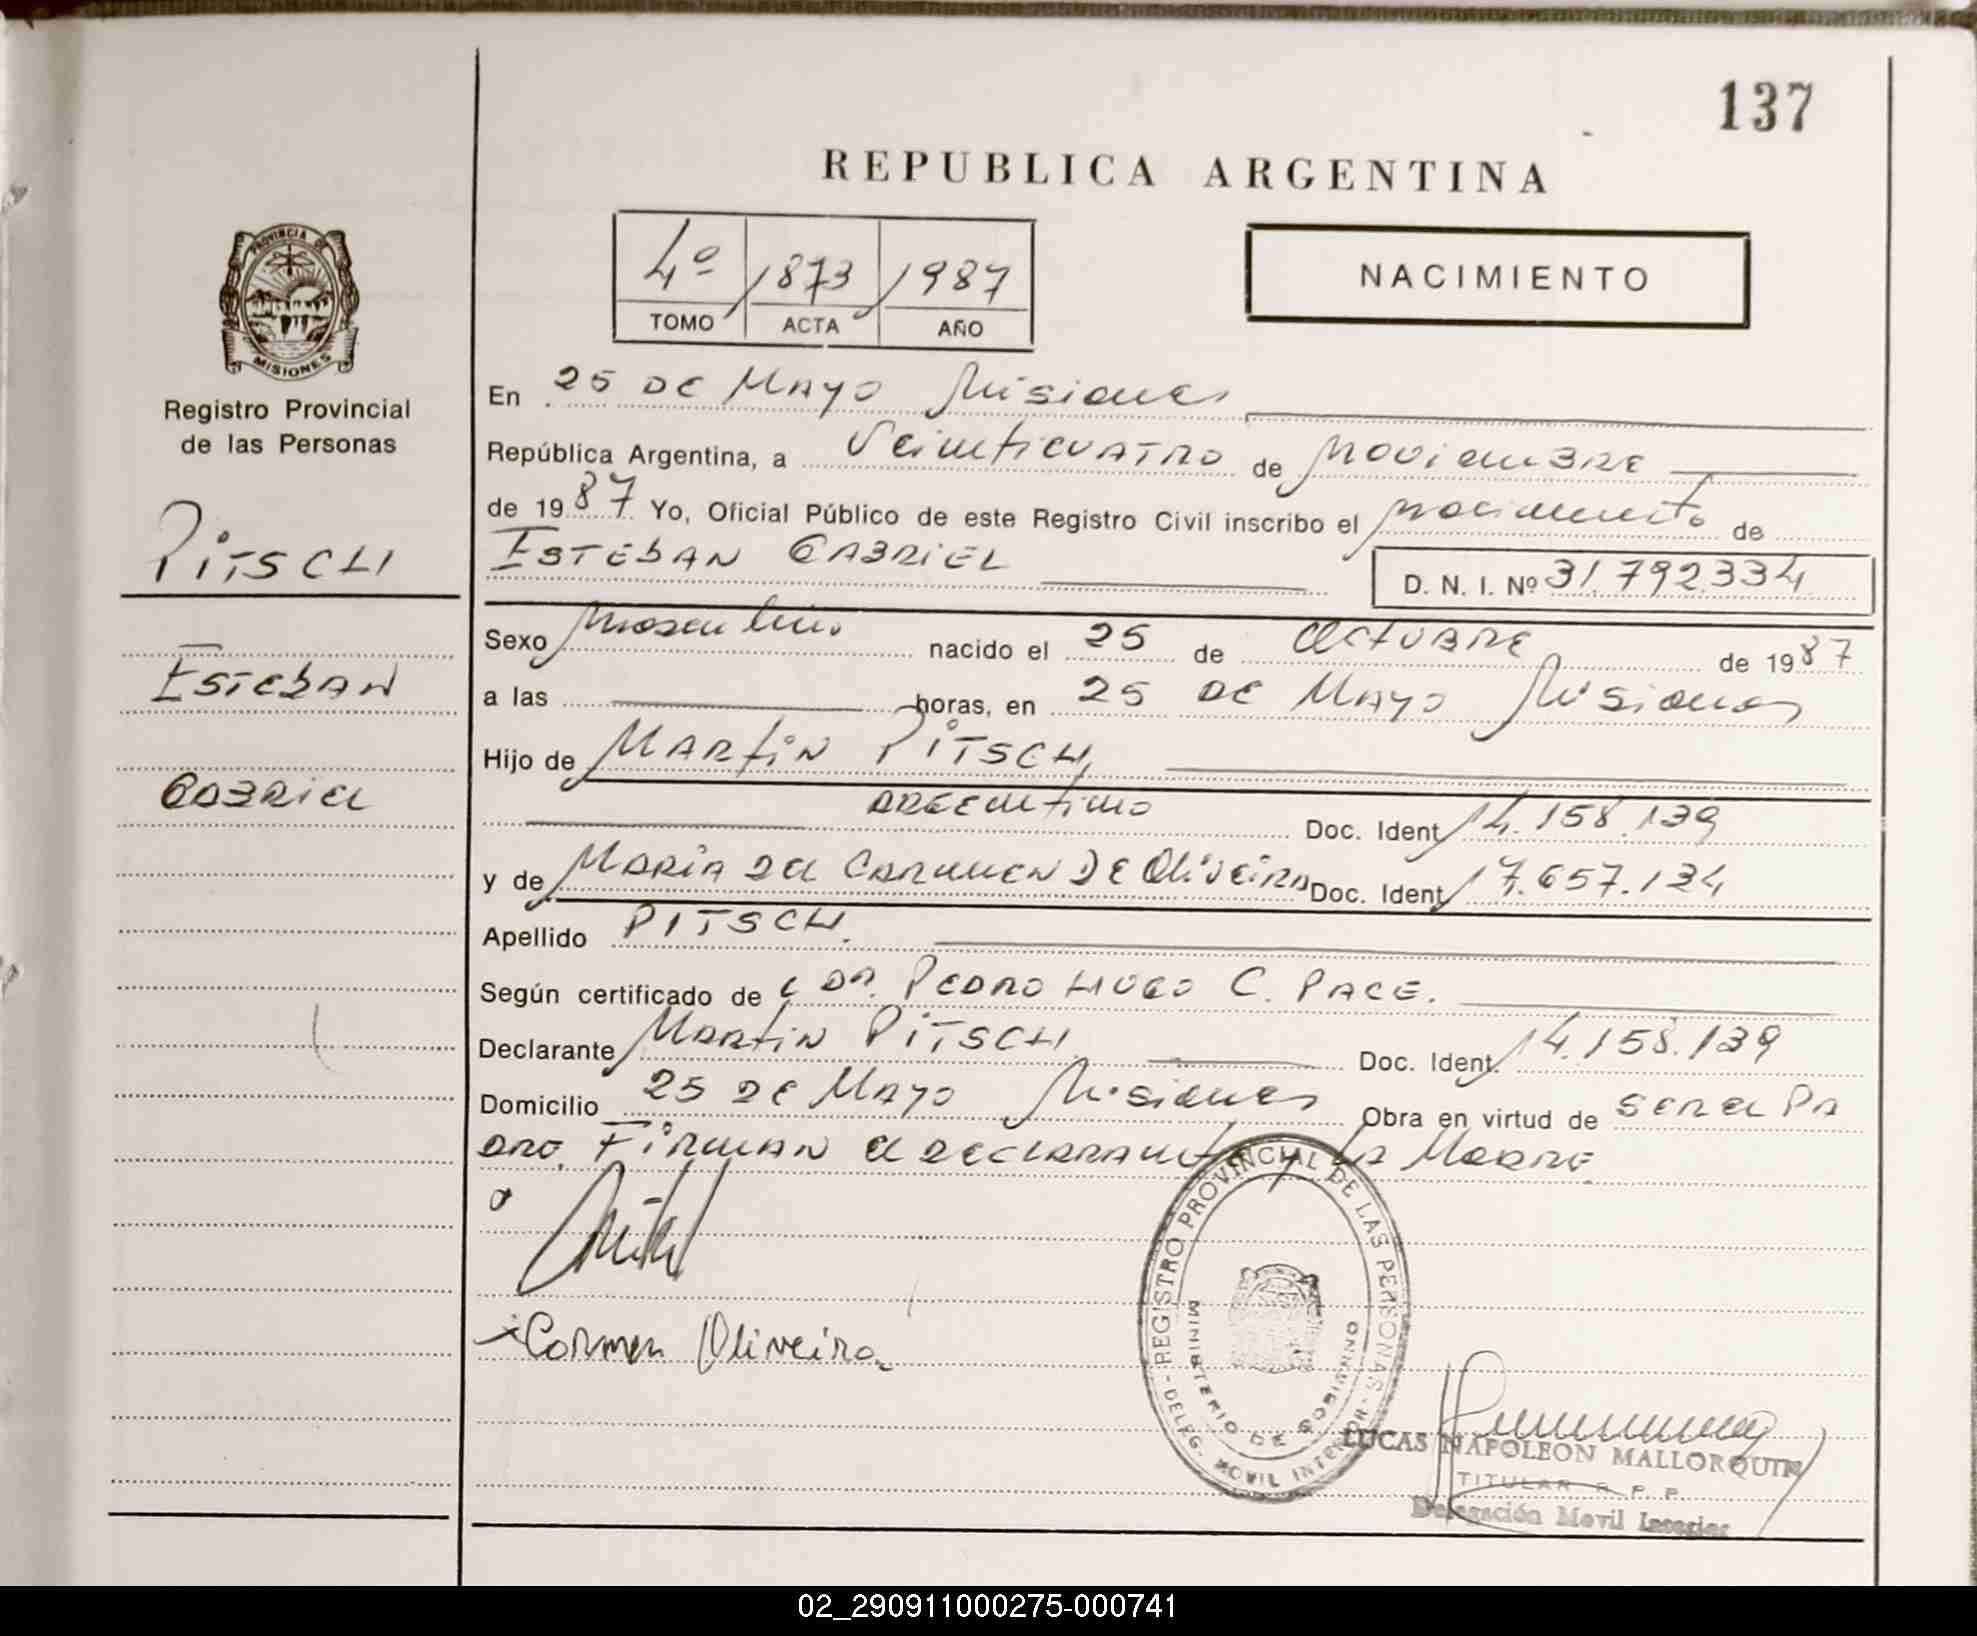 137
REPUBLICA ARGENTINA
4º 1873 1987
TOMO ACTA AÑO
NACIMIENTO
PROVINCIA DE
MISIONES
Registro Provincial
de las Personas
PiTSCH
ESTEBAN
GABRIEL
En 25 DE MAYO Misiones
República Argentina, a VeinticuATRO de NoviemBRE
de 1987 Yo, Oficial Público de este Registro Civil inscribo el nacimiento de
ESTEBAN GABRIEL
D. N. I. Nº 31.792.334
Sexo masculino nacido el 25 de OCTUBRE de 1987
a las horas, en 25 DE MAYO Misiones
Hijo de MARTiN PiTSCH,
ARGENtino Doc. Ident 14.158.139
y de MARiA DEL CARMEN DE OLiVEiRA Doc. Ident 17.657.134
Apellido PITSCH.
Según certificado de DR. PEDRO HUGO C. PACE.
Declarante MARTiN PiTSCH Doc. Ident. 14.158.139
Domicilio 25 DE MAYO Misiones Obra en virtud de SER EL PA
DRE. FiRMAN EL DECLARANTE y LA MADRE
Carmen Oliveira
REGISTRO PROVINCIAL DE LAS PERSONAS
- DELEG. MOVIL INTERIOR -
MINISTERIO DE GOBIERNO
LUCAS NAPOLEON MALLORQUIN
TITULAR R. P. P.
Delegación Movil Interior
02_290911000275-000741